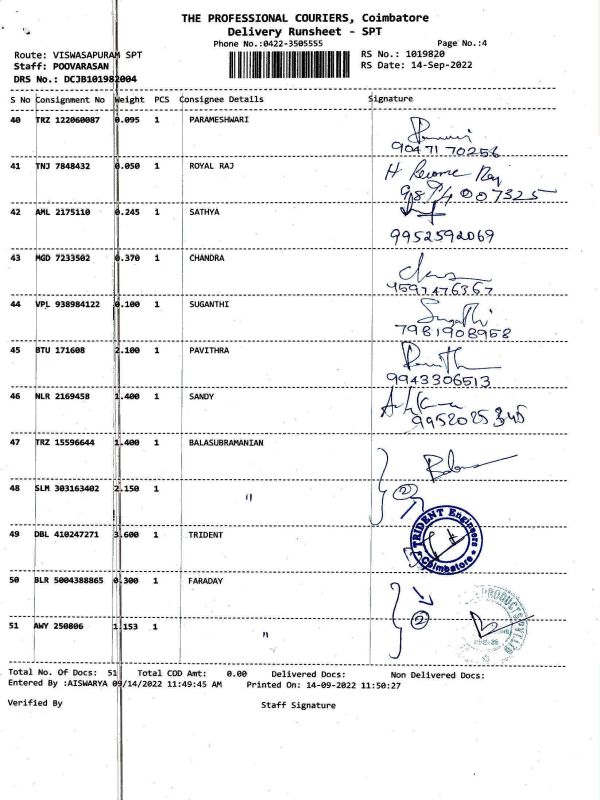 THE PROFESSIONAL COURIERS, Coimbatore
Delivery Runsheet - SPT
Phone No.:0422-3505555 Page No.:4
Route: VISWASAPURAM SPT RS No.: 1019820
Staff: POOVARASAN RS Date: 14-Sep-2022
DRS No.: DCJB101982004
S No Consignment No Weight PCS Consignee Details Signature
40 TRZ 122060087 0.095 1 PARAMESHWARI
9047170256
41 TNJ 7848432 0.050 1 ROYAL RAJ H Raj
42 AML 2175110 0.245 1 SATHYA
9952592069
43 MGD 7233502 0.370 1 CHANDRA
9597476367
44 VPL 938984122 0.100 1 SUGANTHI Sugathi
7981908958
45 BTU 171608 2.100 1 PAVITHRA
9943306513
46 NLR 2169458 1.400 1 SANDY
9952025345
47 TRZ 15596644 1.400 1 BALASUBRAMANIAN
48 SLM 303163402 2.150 1 " 2
49 DBL 410247271 3.600 1 TRIDENT TRIDENT Engineers Coimbatore
50 BLR 5004388865 0.300 1 FARADAY
51 AWY 250806 1.153 1 " 2
Total No. Of Docs: 51 Total COD Amt: 0.00 Delivered Docs: Non Delivered Docs:
Entered By :AISWARYA 09/14/2022 11:49:45 AM Printed On: 14-09-2022 11:50:27
Verified By Staff Signature